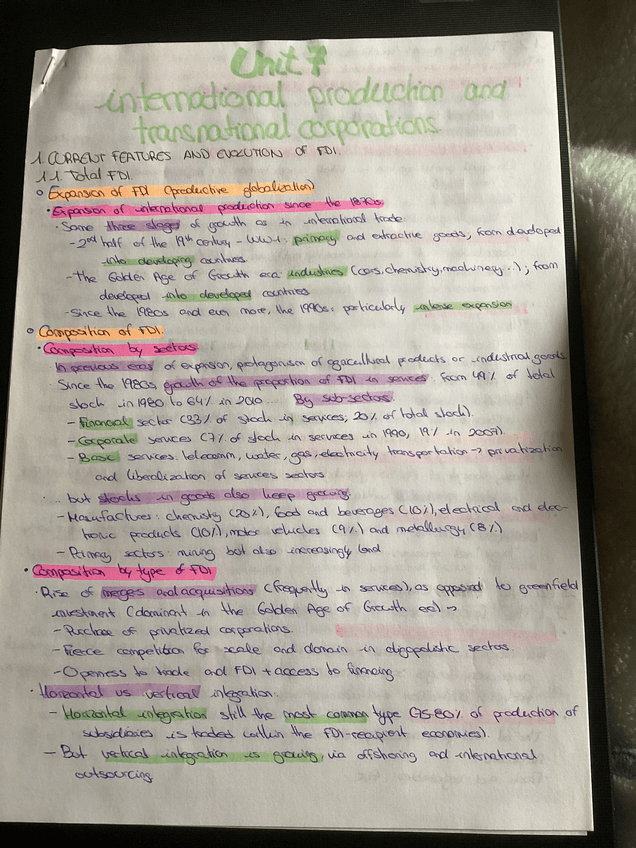 Unit 7
international production and
transnational corporations
1. CURRENT FEATURES AND EVOLUTION OF FDI.
1.1. Total FDI.
Expansion of FDI (productive globalization)
· Expansion of international production since the 1870s
· Same three stages of growth as in international trade
- 2nd half of the 19th century - WW-I: primary and extractive goods, from developed
into developing countries
- The Golden Age of Growth era industries (cars, chemistry, machinery...); from
developed into developed countries
- Since the 1980s and even more, the 1990s: particularly intense expansion
Composition of FDI.
· Composition by sectors
In previous eras of expansion, protagonism of agricultural products or industrial goods
Since the 1980s, growth of the proportion of FDI in services. From 49% of total
stock in 1980 to 64% in 2010... By sub-sectors
- Financial sector (33% of stock in services, 20% of total stock).
- Corporate services (7% of stock in services in 1990, 19% in 2007).
- Basic services: telecomm, water, gas, electricity transportation → privatization
and liberalization of services sectors
... but stocks in goods also keep growing
- Manufactures: chemistry (20%), food and beverages (10%), electrical and elec-
tronic products (10%), motor vehicles (9%) and metallurgy (8%)
- Primary sectors: mining but also increasingly land
· Composition by type of FDI
· Rise of merges and acquisitions (frequently in services), as opposed to greenfield
investment (dominant in the Golden Age of Growth era) →
- Purchase of privatized corporations.
- Fierce competition for scale and domain in oligopolistic sectors.
- Openness to trade and FDI + access to financing
· Horizontal vs vertical integation.
- Horizontal integration still the most common type (75-80% of production of
subsidiaries is traded within the FDI-recipient economies).
- But vertical integration is growing, via offshoring and international
outsourcing